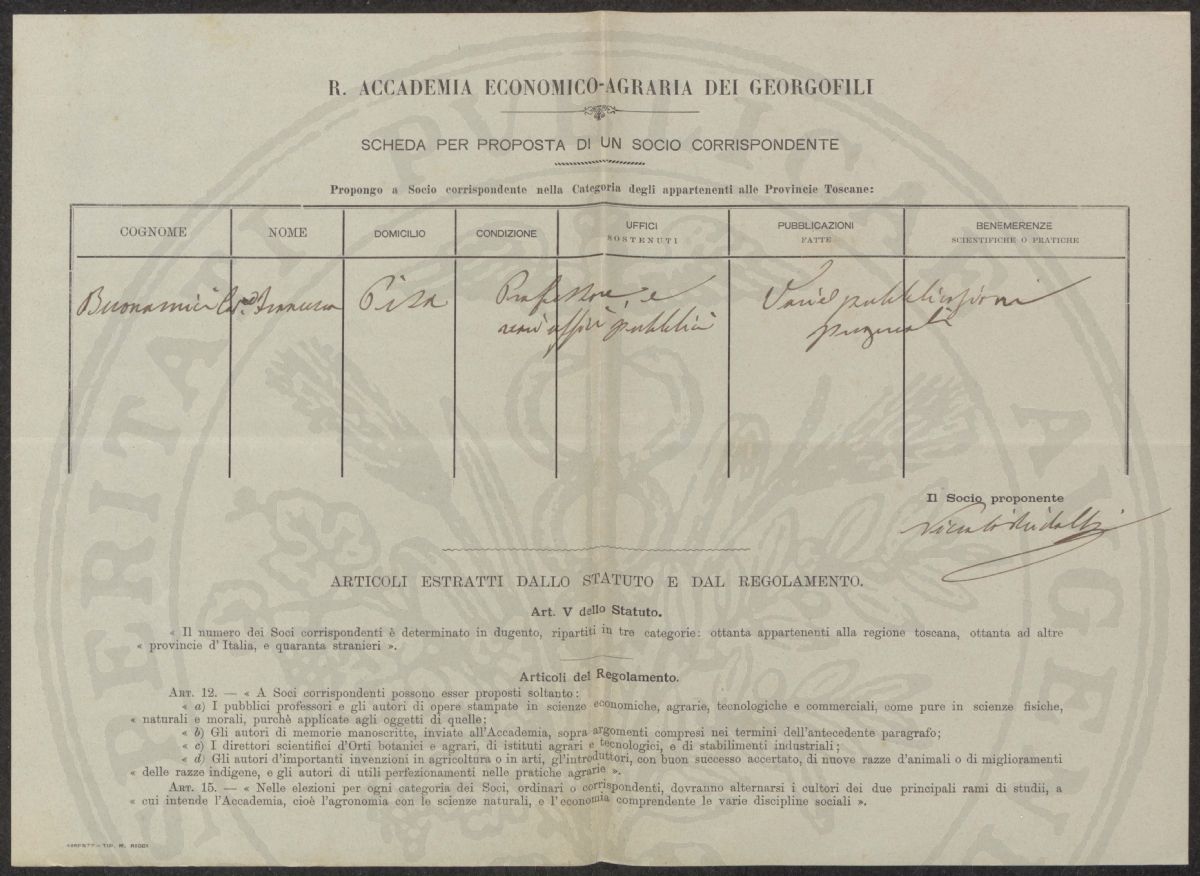 R. ACCADEMIA ECONOMICO-AGRARIA DEI GEORGOFILI
SCHEDA PER PROPOSTA DI UN SOCIO CORRISPONDENTE
Propongo a Socio corrispondente nella Categoria degli appartenenti alle Provincie Toscane:
COGNOME NOME DOMICILIO CONDIZIONE UFFICI SOSTENUTI PUBBLICAZIONI FATTE BENEMERENZE SCIENTIFICHE O PRATICHE
Buonamici Francesco Pisa Professore, e Varie pubblicazioni
varii uffici pubblici
Il Socio proponente
Niccolò Ridolfi
ARTICOLI ESTRATTI DALLO STATUTO E DAL REGOLAMENTO.
Art. V dello Statuto.
« Il numero dei Soci corrispondenti è determinato in dugento, ripartiti in tre categorie: ottanta appartenenti alla regione toscana, ottanta ad altre
« provincie d'Italia, e quaranta stranieri ».
Articoli del Regolamento.
ART. 12. — « A Soci corrispondenti possono esser proposti soltanto:
« a) I pubblici professori e gli autori di opere stampate in scienze economiche, agrarie, tecnologiche e commerciali, come pure in scienze fisiche,
« naturali e morali, purchè applicate agli oggetti di quelle;
« b) Gli autori di memorie manoscritte, inviate all'Accademia, sopra argomenti compresi nei termini dell'antecedente paragrafo;
« c) I direttori scientifici d'Orti botanici e agrari, di istituti agrari e tecnologici, e di stabilimenti industriali;
« d) Gli autori d'importanti invenzioni in agricoltura o in arti, gl'introduttori, con buon successo accertato, di nuove razze d'animali o di miglioramenti
« delle razze indigene, e gli autori di utili perfezionamenti nelle pratiche agrarie ».
ART. 15. — « Nelle elezioni per ogni categoria dei Soci, ordinari o corrispondenti, dovranno alternarsi i cultori dei due principali rami di studii, a
« cui intende l'Accademia, cioè l'agronomia con le scienze naturali, e l'economia comprendente le varie discipline sociali ».
TIP. M. RICCI
PROSPERITATI PUBLICAE AUGENDAE